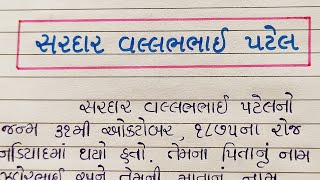 સરદાર વલ્લભભાઈ પટેલ
સરદાર વલ્લભભાઈ પટેલનો
જન્મ ૩૧મી ઓક્ટોબર, ૧૮૭૫ના રોજ
નડિયાદમાં થયો હતો. તેમના પિતાનું નામ
ઝવેરભાઈ અને તેમની માતાનું નામ